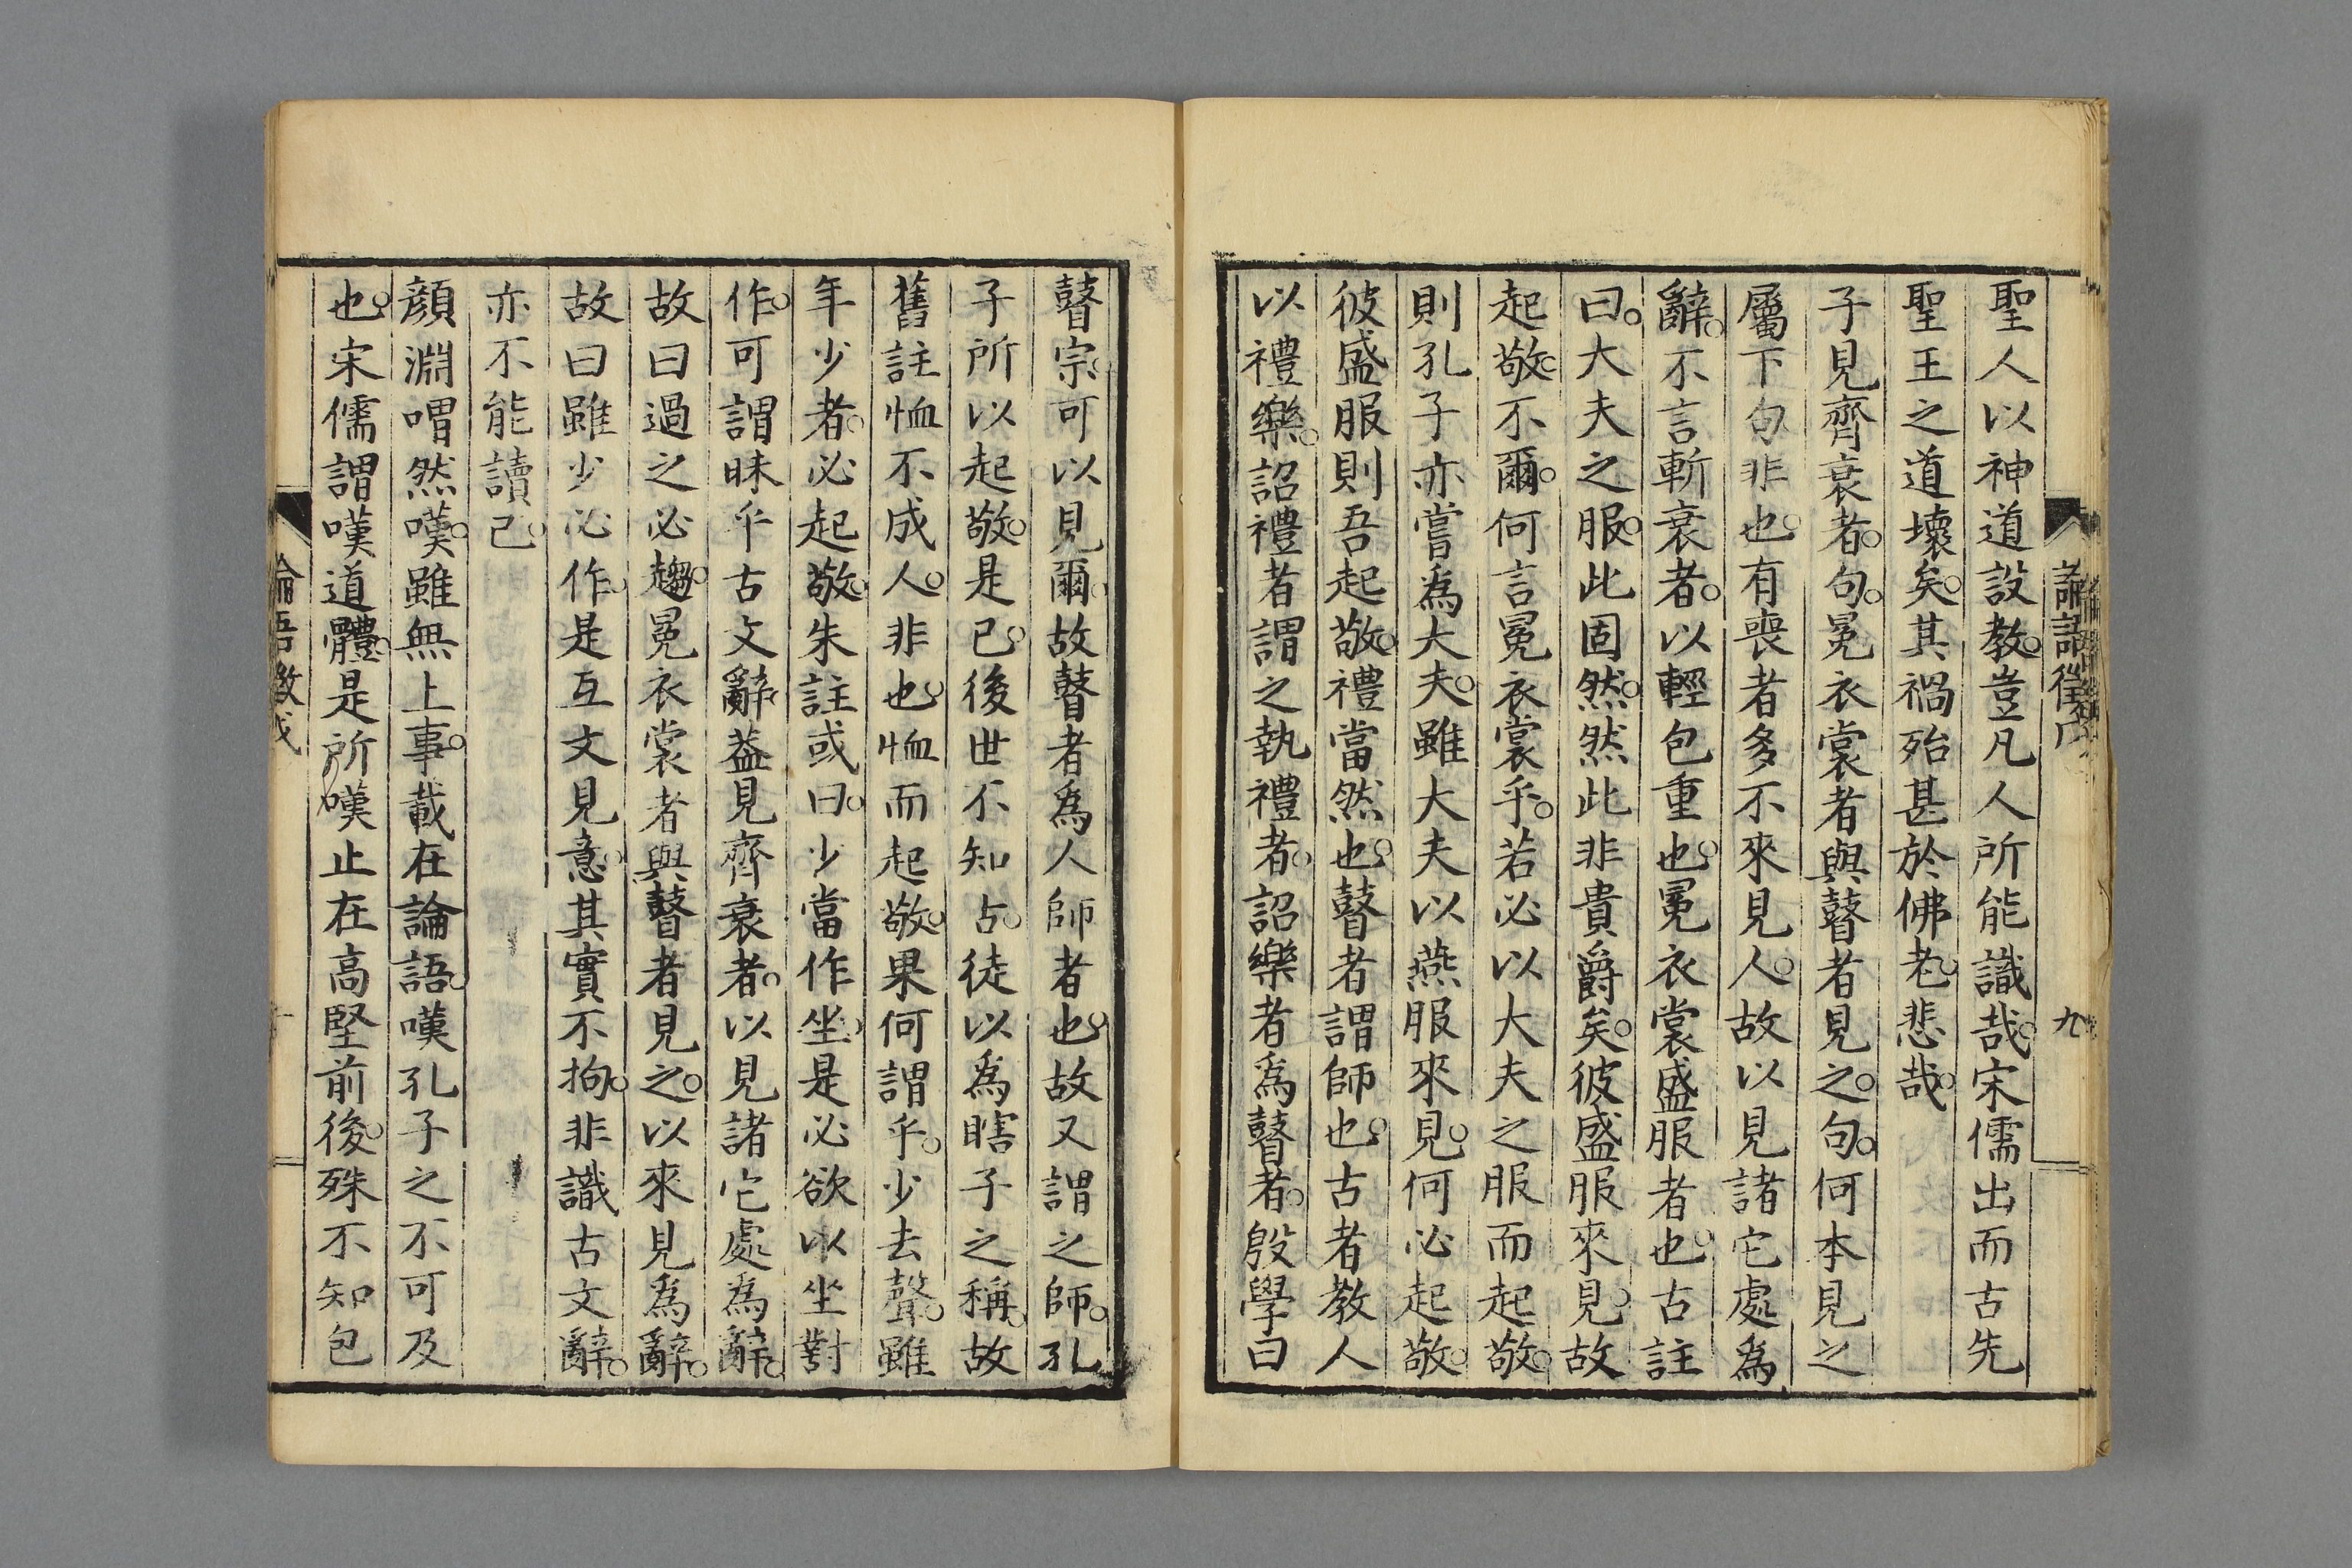 論語徵戊
九
聖人以神道設教。豈凡人所能識哉。宋儒出而古先
聖王之道壞矣。其禍殆甚於佛老。悲哉。
子見齊衰者。句。冕衣裳者與瞽者見之。句。何本見之
屬下句。非也。有喪者多不來見人。故以見諸它處爲
辭。不言斬衰者。以輕包重也。冕衣裳盛服者也。古註
曰。大夫之服。此固然。然此非貴爵矣。彼盛服來見。故
起敬。不爾。何言冕衣裳乎。若必以大夫之服而起敬。
則孔子亦嘗爲大夫。雖大夫以燕服來見。何必起敬。
彼盛服則吾起敬。禮當然也。瞽者謂師也。古者教人
以禮樂。詔禮者謂之執禮者。詔樂者爲瞽者。殷學曰
瞽宗。可以見爾。故瞽者爲人師者也。故又謂之師。孔
子所以起敬。是已。後世不知占。徒以爲瞎子之稱。故
舊註恤不成人。非也。恤而起敬。果何謂乎。少去聲。雖
年少者。必起敬。朱註或曰。少當作坐。是必欲以坐對
作。可謂昧乎古文辭。蓋見齊衰者。以見諸它處爲辭。
故曰過之必趨。冕衣裳者與瞽者見之。以來見爲辭。
故曰雖少必作。是互文見意。其實不拘。非識古文辭。
亦不能讀已。
顏淵喟然嘆。雖無上事。載在論語。嘆孔子之不可及
也。宋儒謂嘆道體。是所嘆止在高堅前後。殊不知包
論語徵戊
十